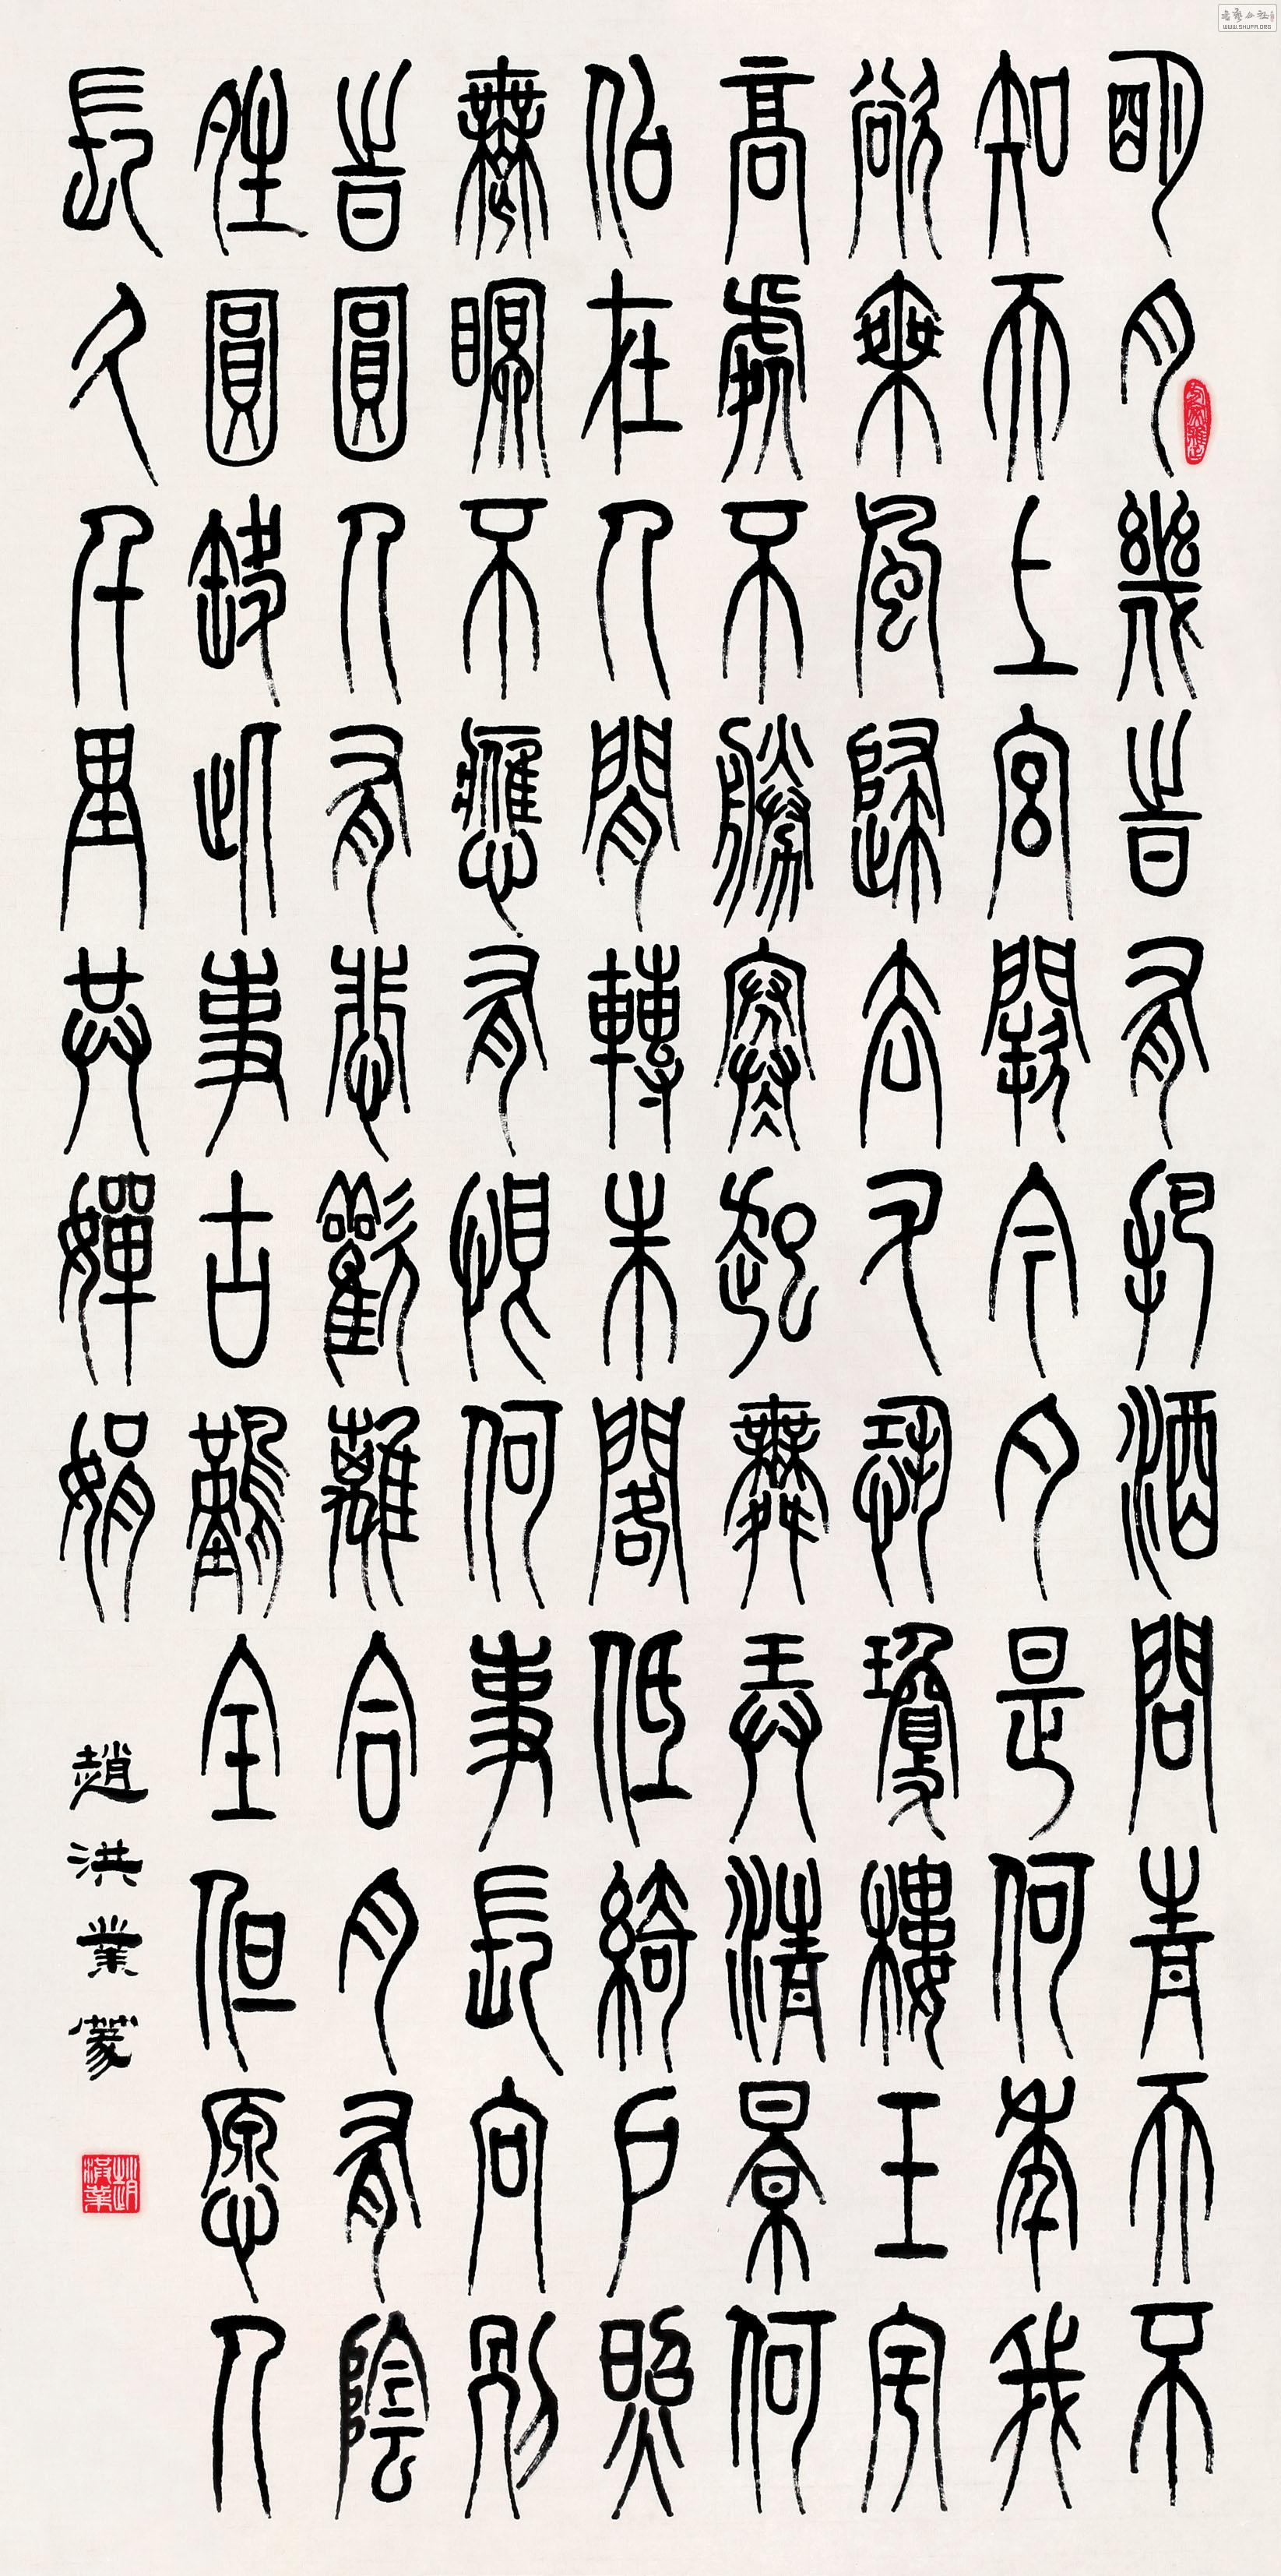 明月幾時有把酒問青天不
知天上宮闕今夕是何年我
欲乘風歸去又恐瓊樓玉宇
高處不勝寒起舞弄清景何
佀在人間轉朱閣低綺戶照
無眠不應有恨何事長向別
時圓人有悲歡離合月有陰
晴圓缺此事古難全但願人
長久千里共嬋娟
趙洪業篆
趙洪業
WWW.SHUFA.ORG